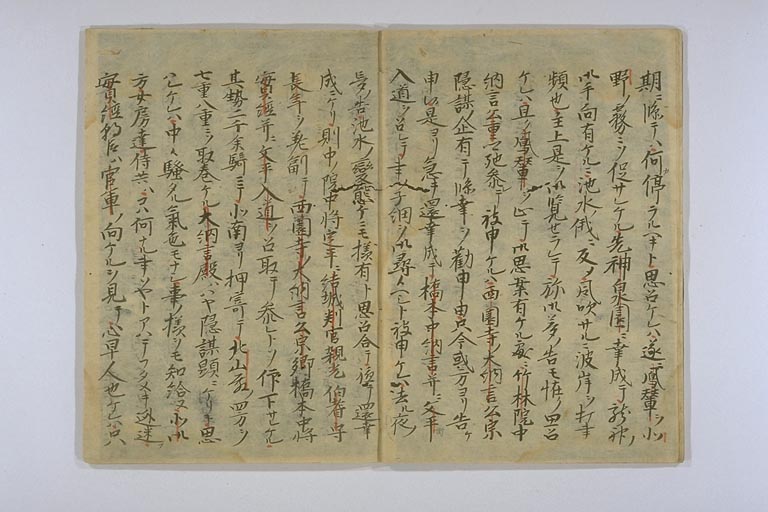 期ニ臨テハ何停ラルヘキト思召ケレハ遂ニ鳳輦ヲ小
野ノ霧ミニ促サレケル先神泉園ニ幸成テ龍神ノ
御手向有ケルニ池水俄ニ反ノ風吹サルニ波岸ヲ打事
頻也主上是ヲ御覧セラレテ弥御夢ノ告モ恠ク思召
ケレハ且ク鳳輦ヲ止テ御思案有ケル處ニ竹林院中
納言公重馳参テ被申ケルハ西園寺大納言公宗
隠謀ノ企有テ臨幸ヲ勧申由只今或方ヨリ告ケ
申候是ヨリ急キ還幸成テ橋本中納言并ニ文平
入道ヲ召レテ事ノ子細ヲ御尋候ヘシト被申ケレハ去ル夜ノ
夢ノ告池水ノ變態ケニモ様有ト思召合テ軈テ還幸
成ケリ則中ノ院中将定平ニ結城判官親光伯耆守
長年ヲ差副テ西園寺大納言公宗卿橋本中将
實俊并ニ文平入道ヲ召取テ参レトソ仰下サレケル
其勢二千余騎ニテ小南ヨリ押寄テ北山殿四方ヲ
七重八重ニソ取巻ケル大納言殿ハヤ隠謀顕ニケリト思
ハレケレハ中々騒タル氣色モナシ事ノ様ヲモ知給ヌ北ノ御
方女房達侍共ハコハ何ナル事ソヤトアハテフタメキ逃迷フ
實俊朝臣ハ官軍ノ向ケルヲ見テ心早人也ケレハ只